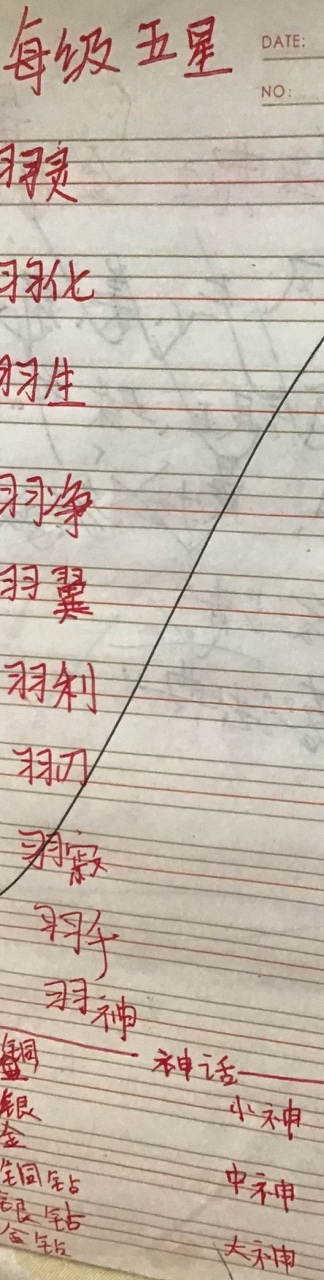 每级五星
DATE:
NO:
羽灵
羽化
羽生
羽净
羽翼
羽利
羽刃
羽寂
羽千
羽神
神话
铜
银
金
铜钻
银钻
金钻
小神
中神
大神